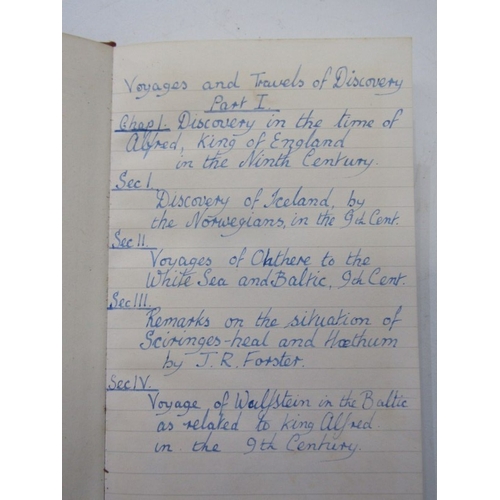 Voyages and Travels of Discovery
Part I.
Chap I. Discovery in the time of
Alfred, King of England
in the Ninth Century.
Sec I.
Discovery of Iceland, by
the Norwegians, in the 9th Cent.
Sec II.
Voyages of Ohthere to the
White Sea and Baltic, 9th Cent.
Sec III.
Remarks on the situation of
Sciringes-heal and Haethum
by J. R. Forster.
Sec IV.
Voyage of Wulfstein in the Baltic
as related to King Alfred
in the 9th Century.